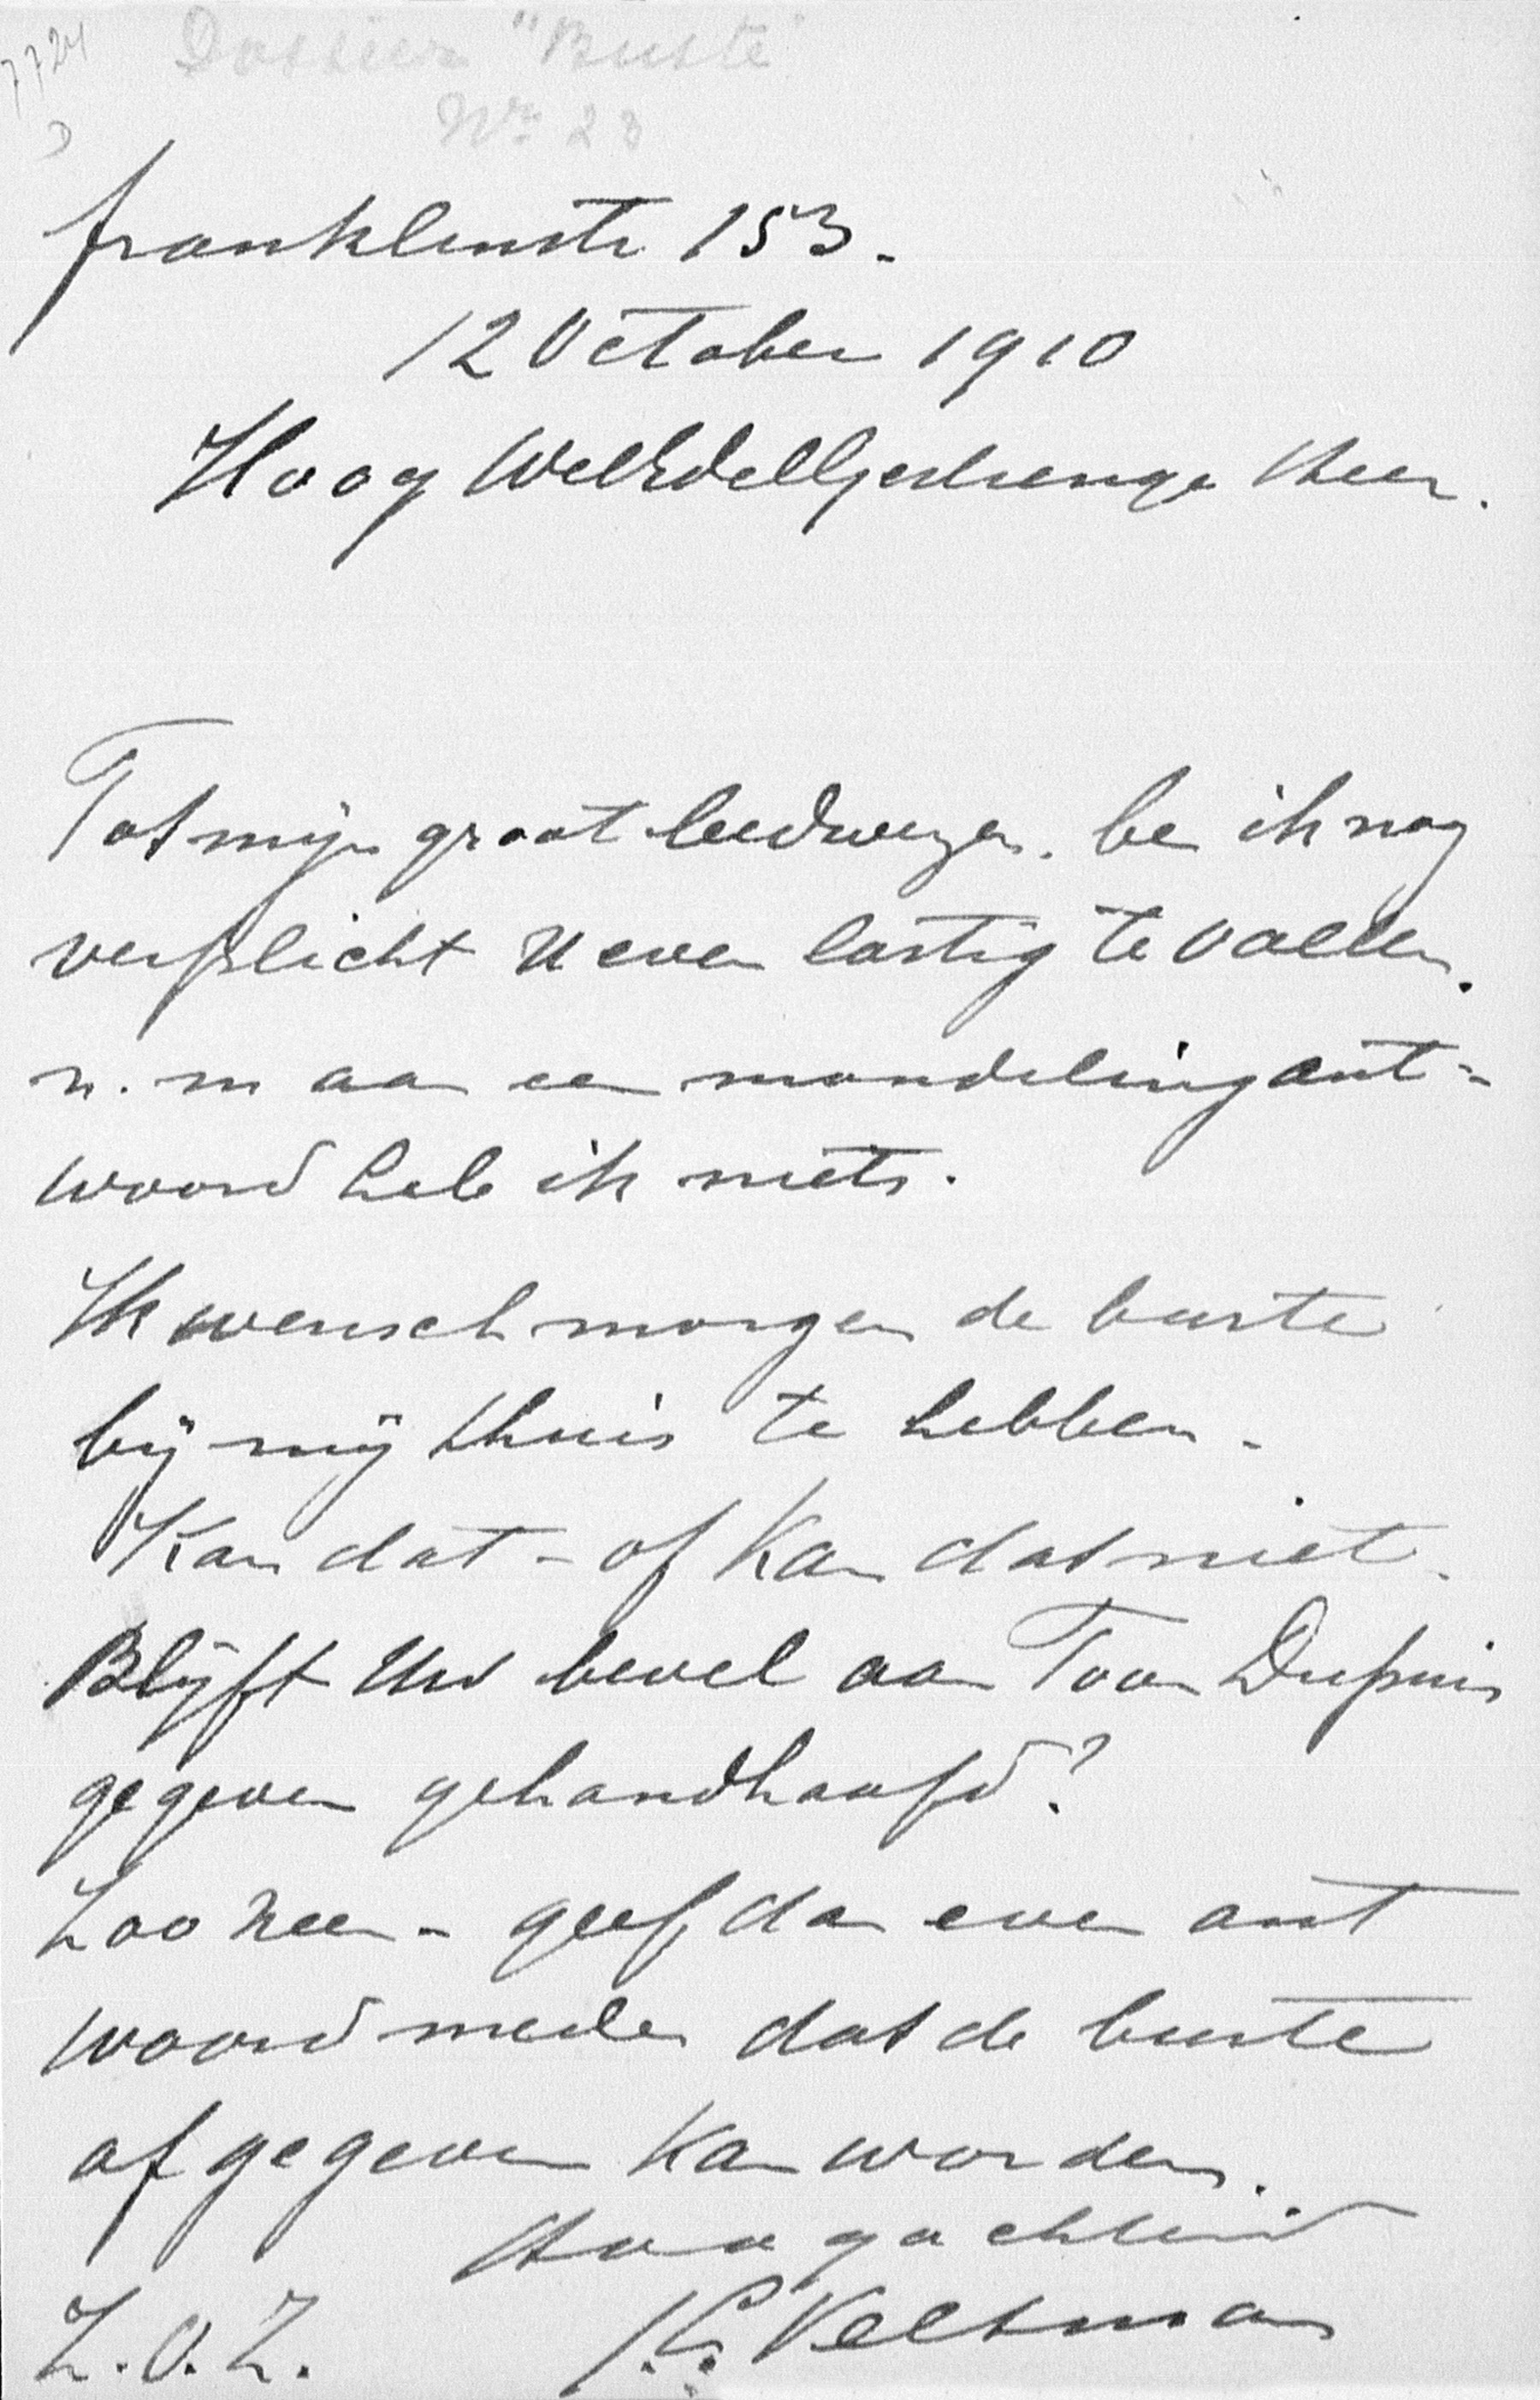 7724
D
Dossier "Buste"
No 23
Franklinstr 153.
12 October 1910
Hoog WelEdelGestrenge Heer.
Tot mijn groot leedwezen. ben ik nog
verplicht U even lastig te vallen.
n.m aan een mondeling ant=
woord heb ik niets.
Ik wensch morgen de buste
bij mij thuis te hebben.
Kan dat - of kan dat niet.
Blijft Uw bevel aan Toon Dupuis
gegeven gehandhaafd?
Zoo neen - geef dan even ant
woord mede dat de buste
afgegeven kan worden.
Hoogachtend
K. Veltman
Z.O.Z.